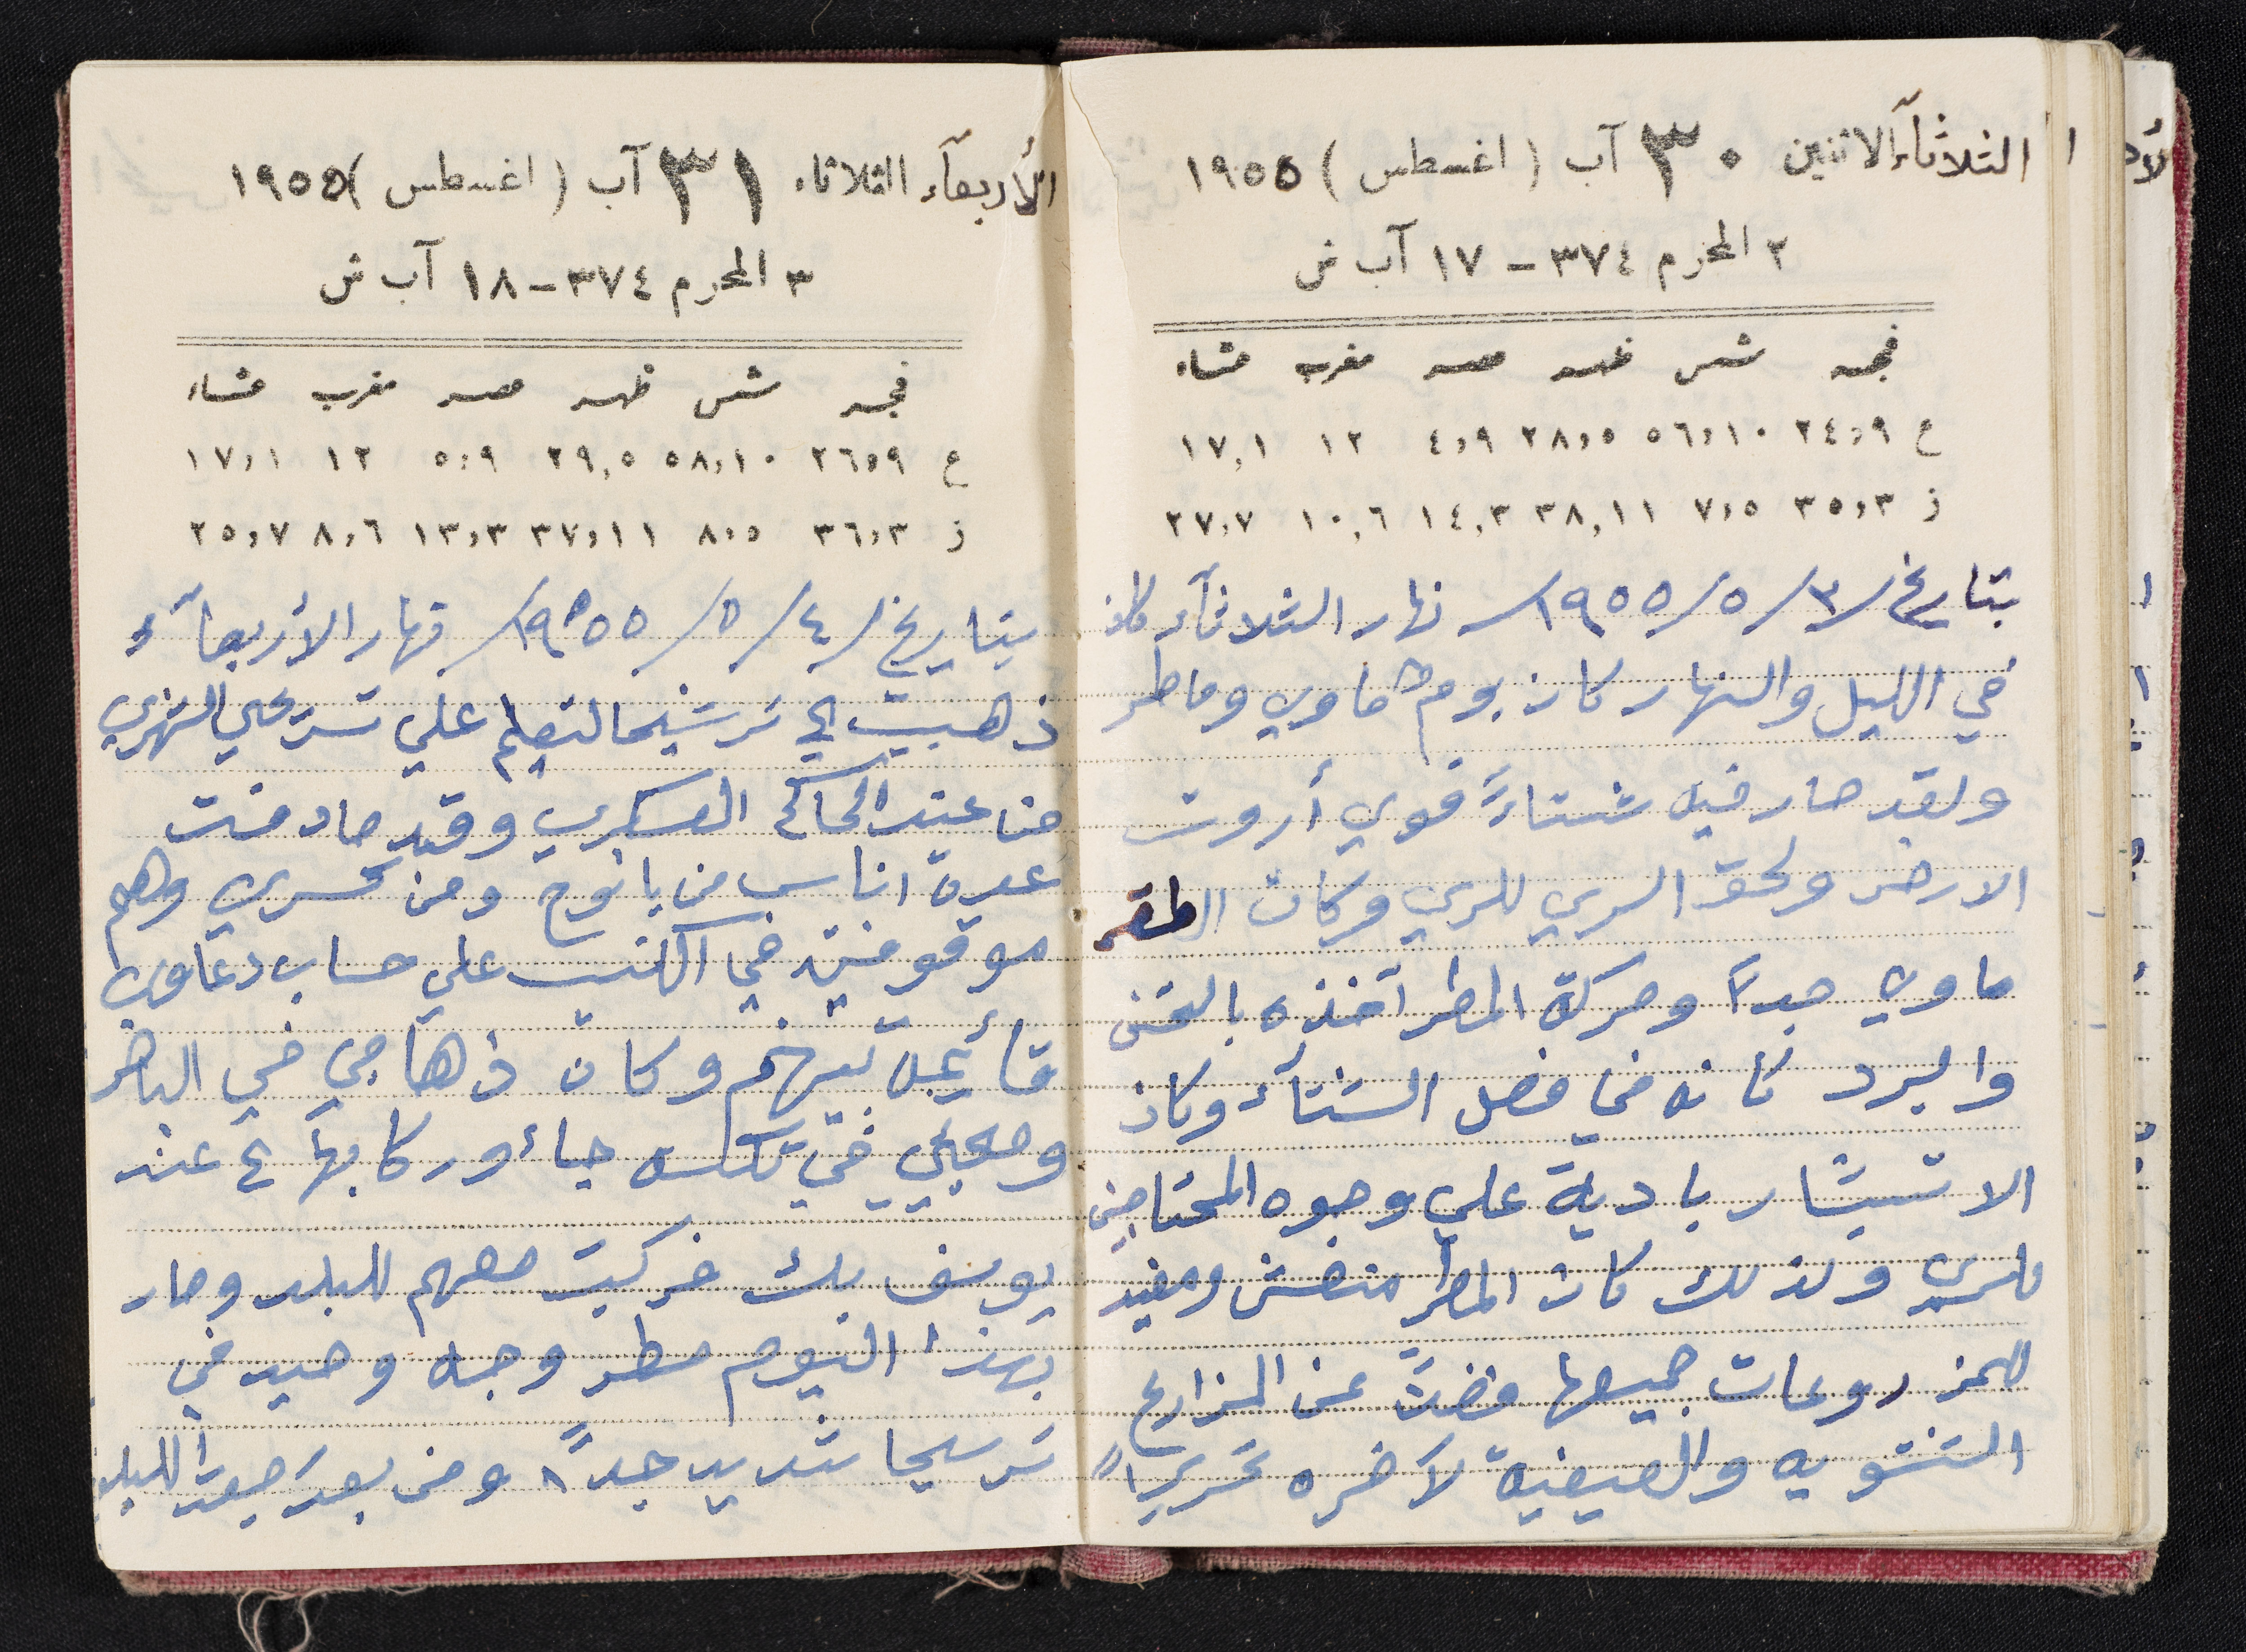 الثلاثآء الاثنين ٣٠ آب (اغسطس) ١٩٥٥
٢ المحرم ٣٧٤ - ١٧ آب ش
فجر شمس ظهر عصر مغرب عشاء
ع ٢٤،٩ ٥٦،١٠ ٢٨،٥ ٤،٩ ١٢ ١٧،١
ز ٣٥،٣ ٧،٥ ٣٨،١١ ١٤،٣ ١٠،٦ ٢٧،٧
بتاريخ /٣/ ٥/ ١٩٥٥/ نهار الثلاثآء كان
في الليل والنهار كان يوم ماوي وماطر
ولقد صار فيه شتاءً قوي أروت
الارض ولحق الري للري وكان الطقس
ماوي جداً وحركة المطر آخذه بالتحتى
والبرد كانه في فصل الشتآء وكان
الاتبشار بادية على وجوه المحتاجين
للري ولذلك كان المطر منعش ومفيد
للمزروعات جميعها فضتً عن المزارع
الشتويه والصيفية لآخره تحريراً
الأربعآء الثلاثاء ٣١ آب (اغسطس) ١٩٥٥
٣ المحرم ٣٧٤ - ١٨ آب ش
فجر شمس ظهر عصر مغرب عشاء
ع ٢٦،٩ ٥٨،١٠ ٢٩،٥ ٥،٩ ١٢ ١٧،١
ز ٣٦،٣ ٨،٥ ٣٧،١١ ١٣،٣ ٨،٦ ٢٥،٧
بتاريخ /٤/ ٥/ ١٩٥٥/ نهار الأربعآء
ذهبت الى ترشيحا لتعلم علي تسريحي الشهري
من عند الحاكم العسكري وقد صادفت
عدة اناس من يانوح ومن كسرى وهم
موقوفين في على حساب دعاوي
بينهم وكان ذهابي في الباص
ومجيي في تكسه جاء وركابها عند
يوسف بك فركبت معهم للبلد وصار
بهذا اليوم مطر وجه وصيد في
ترسيحا شديد جداً ومن بعد رجعت للبلد